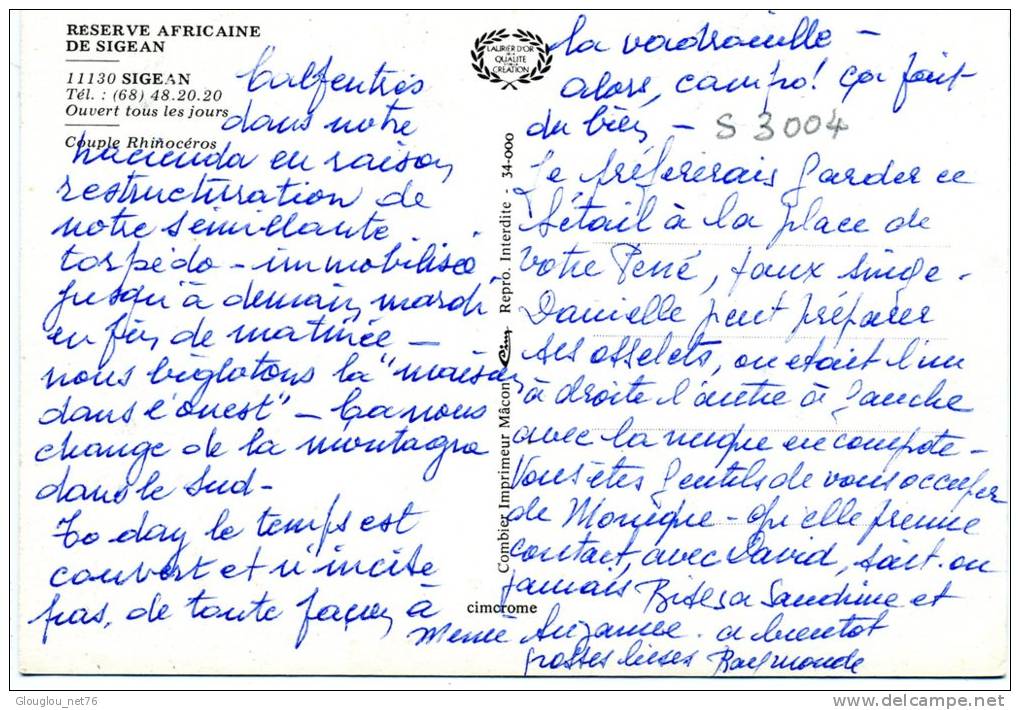 RÉSERVE AFRICAINE
DE SIGEAN
11130 SIGEAN
Tél. : (68) 48.20.20
Ouvert tous les jours
Couple Rhinocéros
Calfeutrés
dans notre
hacienda en raison
restructuration de
notre sémillante
torpédo - immobilisée
jusqu'à demain mardi
en fin de matinée -
nous biglotons la "maison
dans l'ouest" - Ça nous
change de la montagne
dans le sud -
To day le temps est
couvert et n'incite
pas, de toute façon à
LAURIER D'OR
DE LA
QUALITÉ
CRÉATION
Combier Imprimeur Mâcon Cim Repro. Interdite 34-000
cimcrome
la vadrouille -
alors, campo! ça fait
du bien - S 3004
Je préfèrerais garder ce
bétail à la place de
votre René, faux singe.
Danielle peut préparer
ses osselets, on était l'un
à droite l'autre à gauche
avec la nuque en compote -
Vous êtes gentils de vous occuper
de Monique - qu'elle prenne
contact, avec David, sait-on
jamais Bises à Sandrine et
Mémé Suzanne. à bientôt
grosses bises Raymonde
Glouglou_net76